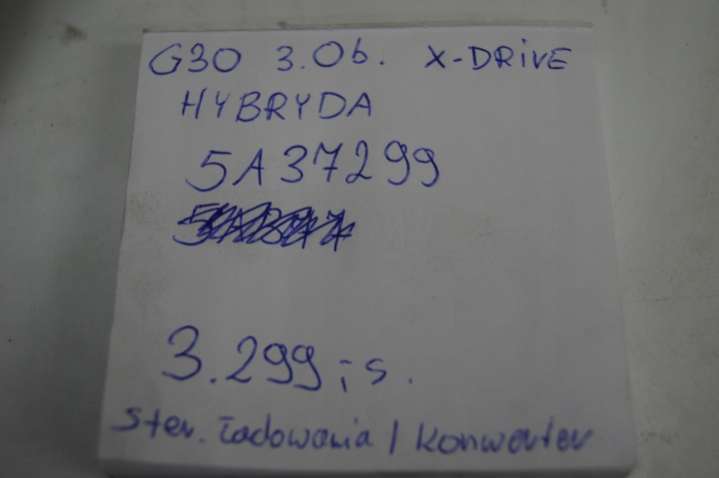 G30 3.0b. X-DRiVE
HYBRYDA
5A37299
3.299,-s.
ster. ładowania / konwerter